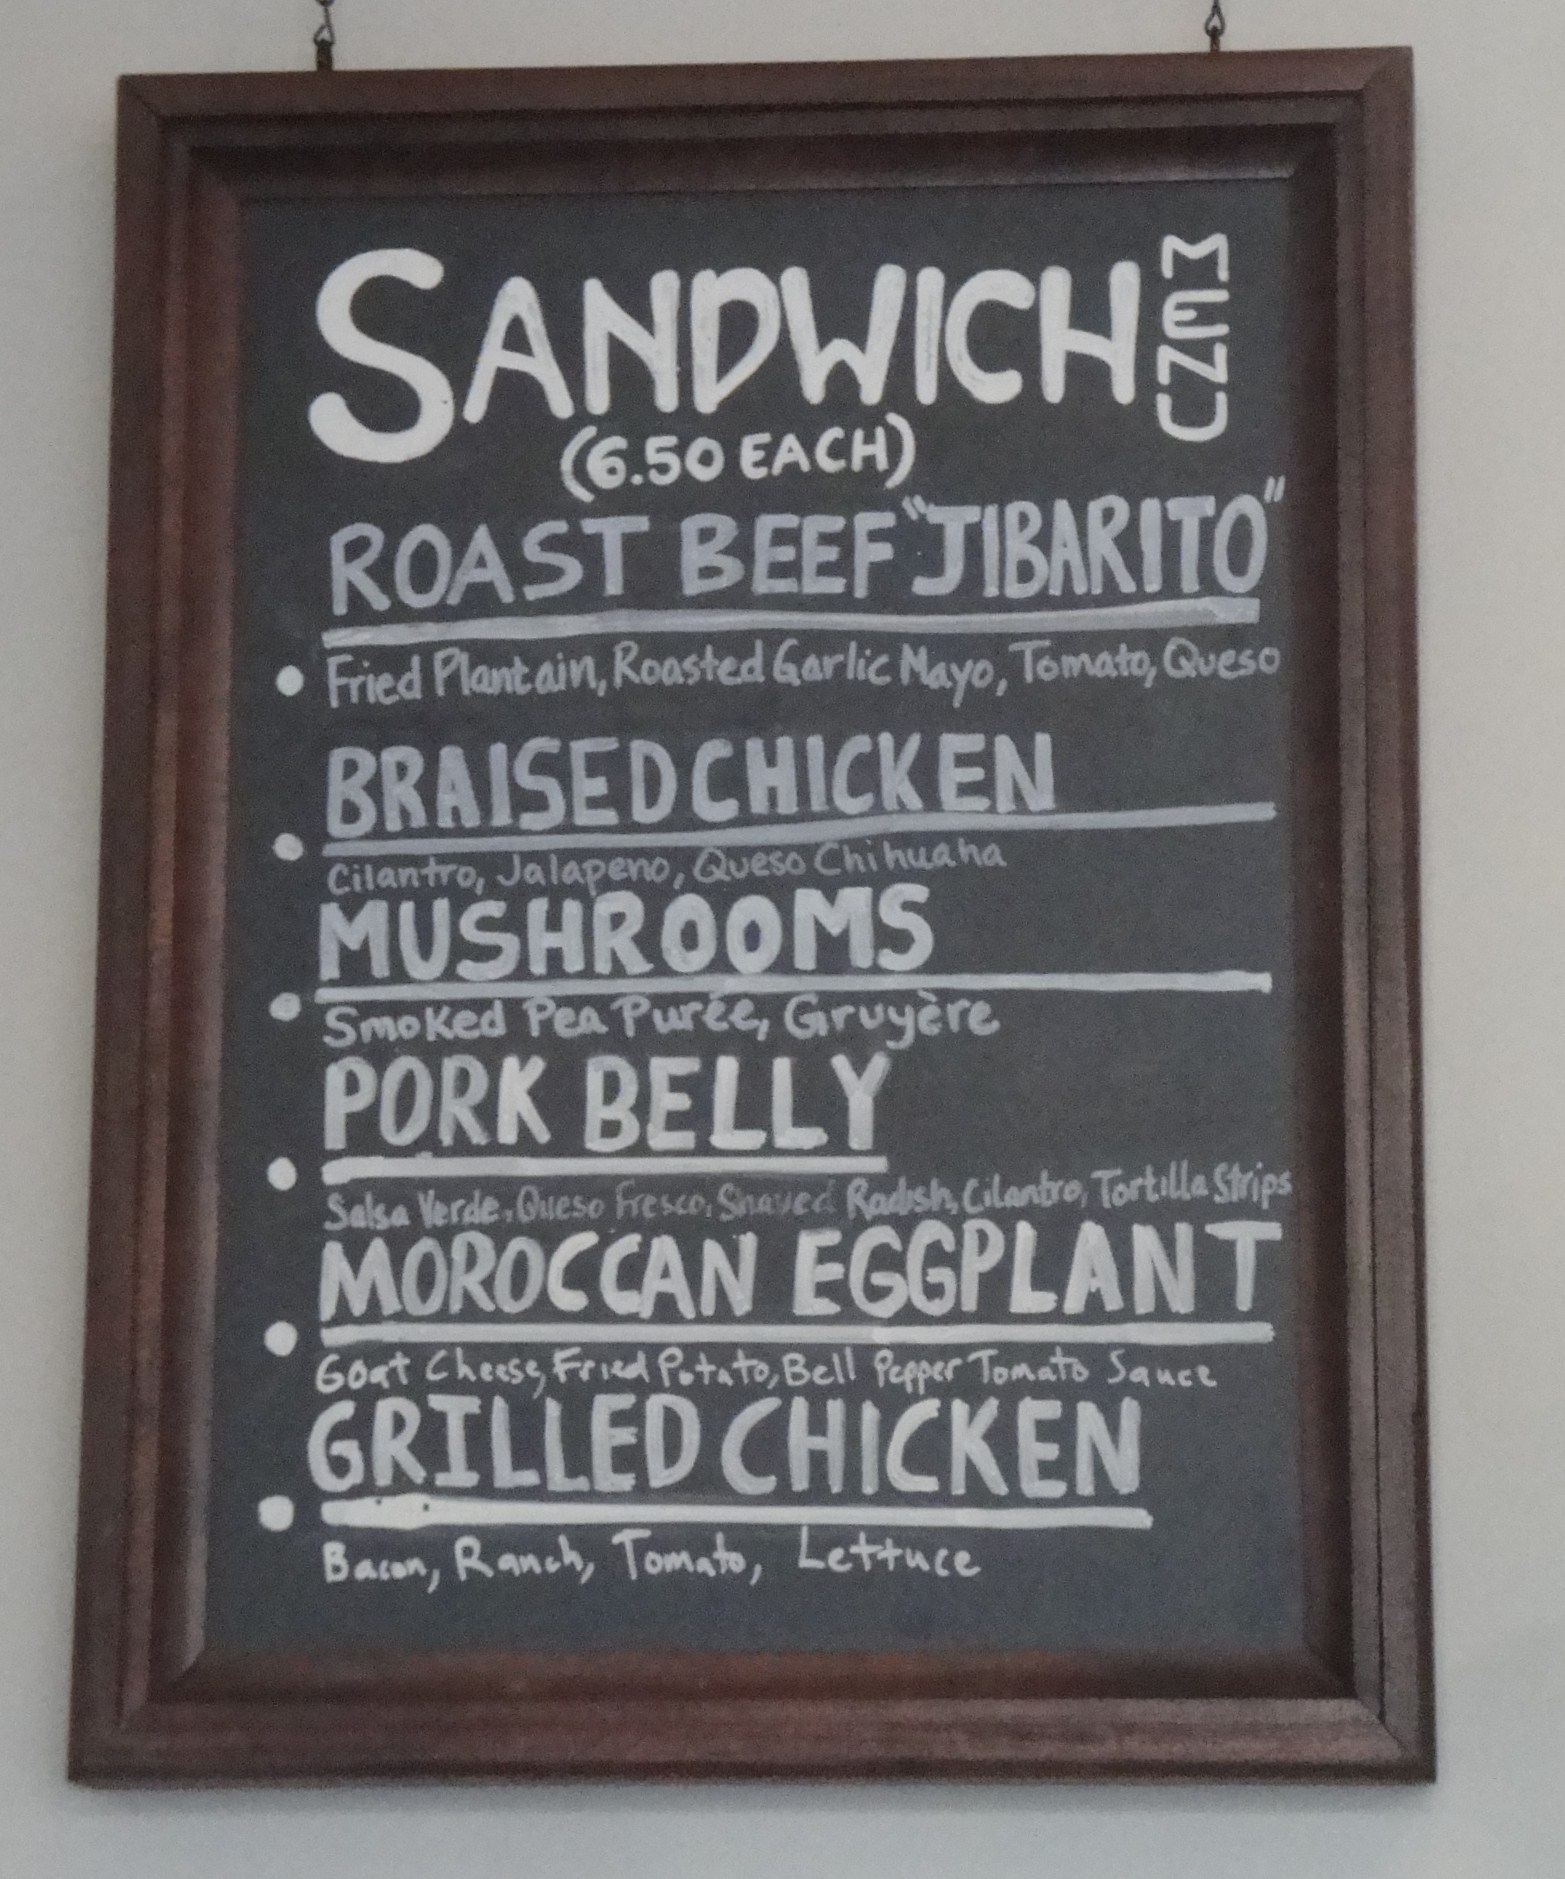 SANDWICH MENU
(6.50 EACH)
ROAST BEEF "JIBARITO"
Fried Plantain, Roasted Garlic Mayo, Tomato, Queso
BRAISED CHICKEN
Cilantro, Jalapeno, Queso Chihuaha
MUSHROOMS
Smoked Pea Purée, Gruyère
PORK BELLY
Salsa Verde, Queso Fresco, Shaved Radish, Cilantro, Tortilla Strips
MOROCCAN EGGPLANT
Goat Cheese, Fried Potato, Bell Pepper Tomato Sauce
GRILLED CHICKEN
Bacon, Ranch, Tomato, Lettuce